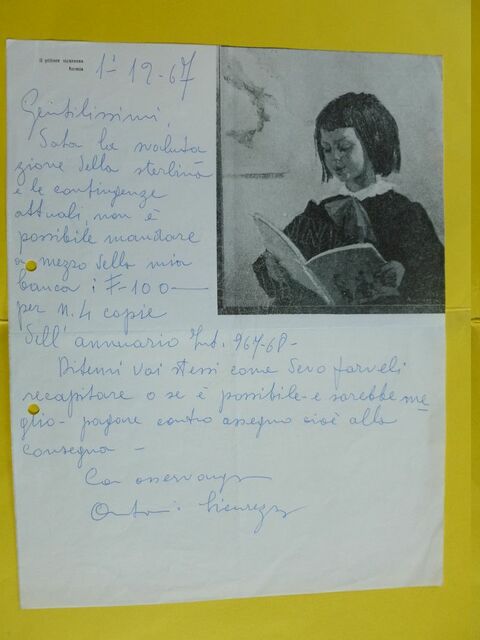 il pittore sicurezza
formia
1° 12-67
Gentilissimi,
Data la svaluta
zione della sterlina
e le contingenze
attuali, non è
possibile mandare
a mezzo della mia
banca i F-100-
per n. 4 copie
dell'annuario Int. 967-68-
Ditemi voi stessi come devo farveli
recapitare o se è possibile - e sarebbe me
glio - pagare contro assegno cioè alla
consegna -
Con osservanza
Sicurezza